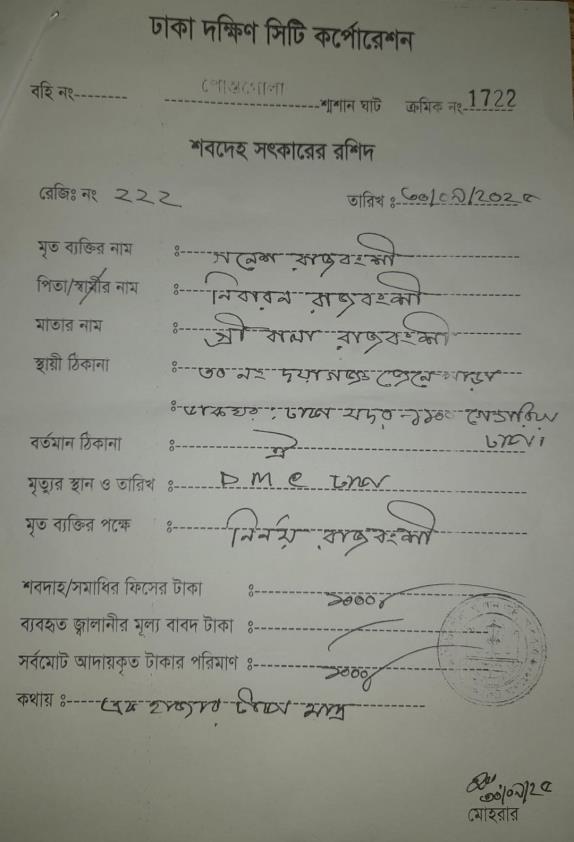 ঢাকা দক্ষিণ সিটি কর্পোরেশন
বহি নং------- পোস্তগোলা শ্মশান ঘাট ক্রমিক নং 1722
শবদেহ সৎকারের রশিদ
রেজিঃ নং 222 তারিখ : ৩০/০৯/২০২৫
মৃত ব্যক্তির নাম ঃ- গনেশ রাজবংশী
পিতা/স্বামীর নাম ঃ- নিবারন রাজবংশী
মাতার নাম ঃ- শ্রী বালা রাজবংশী
স্থায়ী ঠিকানা ঃ- ৩০ নং দয়াগঞ্জ জেলে পাড়া
ঃ- ডাকঘর : ঢাকা সদর -১১০০ গেন্ডারিয়া
ঢাকা।
বর্তমান ঠিকানা ঃ- ঐ
মৃত্যুর স্থান ও তারিখ ঃ- D M C ঢাকা
মৃত ব্যক্তির পক্ষে ঃ- নির্নয় রাজবংশী
শবদাহ/সমাধির ফিসের টাকা ঃ- ১০০০/
ব্যবহৃত জ্বালানীর মূল্য বাবদ টাকা ঃ-
সর্বমোট আদায়কৃত টাকার পরিমাণ ঃ- ১০০০/
কথায় ঃ- এক হাজার টাকা মাত্র
৩০/০৯/২৫
মোহরার